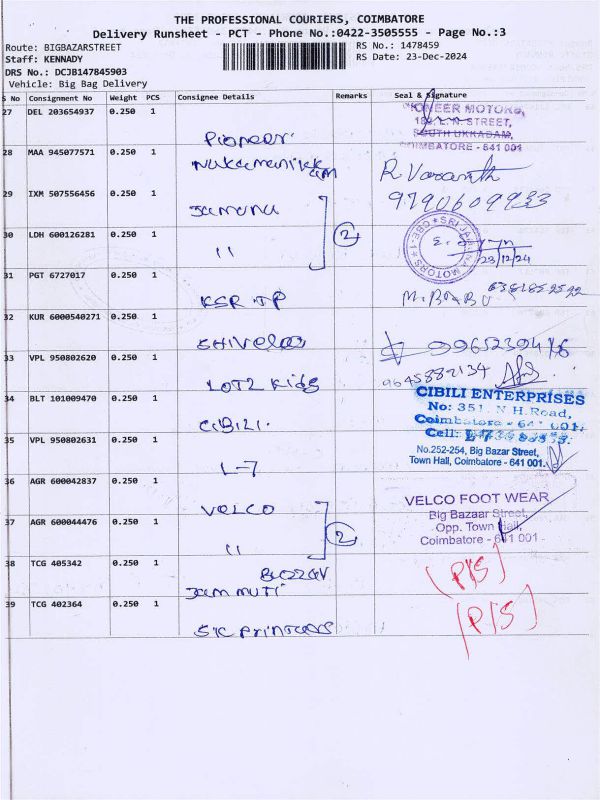 THE PROFESSIONAL COURIERS, COIMBATORE
Delivery Runsheet - PCT - Phone No.:0422-3505555 - Page No.:3
Route: BIGBAZARSTREET
RS No.: 1478459
Staff: KENNADY
RS Date: 23-Dec-2024
DRS No.: DCJB147845903
Vehicle: Big Bag Delivery
S No Consignment No Weight PCS Consignee Details Remarks Seal & Signature
27 DEL 203654937 0.250 1 Pioneer
PIONEER MOTORS,
STREET,
SOUTH UKKADAM,
COIMBATORE - 641 001
28 MAA 945077571 0.250 1
R Vasanth
29 IXM 507556456 0.250 1 Jamuna
9790609933
2
30 LDH 600126281 0.250 1 11
SRI JAMUNA MOTORS * CBE-1 *
23/12/24
31 PGT 6727017 0.250 1 KSR TP
M. BABU
32 KUR 6000540271 0.250 1
33 VPL 950802620 0.250 1 LOT2 Kids
9645882134
34 BLT 101009470 0.250 1 CIBILI.
CIBILI ENTERPRISES
No: 351, N.H. Road,
Coimbatore - 641 001.
Cell:
35 VPL 950802631 0.250 1 L-7
No.252-254, Big Bazar Street,
Town Hall, Coimbatore - 641 001.
36 AGR 600042837 0.250 1 VELCO
VELCO FOOT WEAR
Big Bazaar Street,
Opp. Town Hall,
Coimbatore - 641 001
2
37 AGR 600044476 0.250 1 11
38 TCG 405342 0.250 1
(P/S)
39 TCG 402364 0.250 1
(P/S)